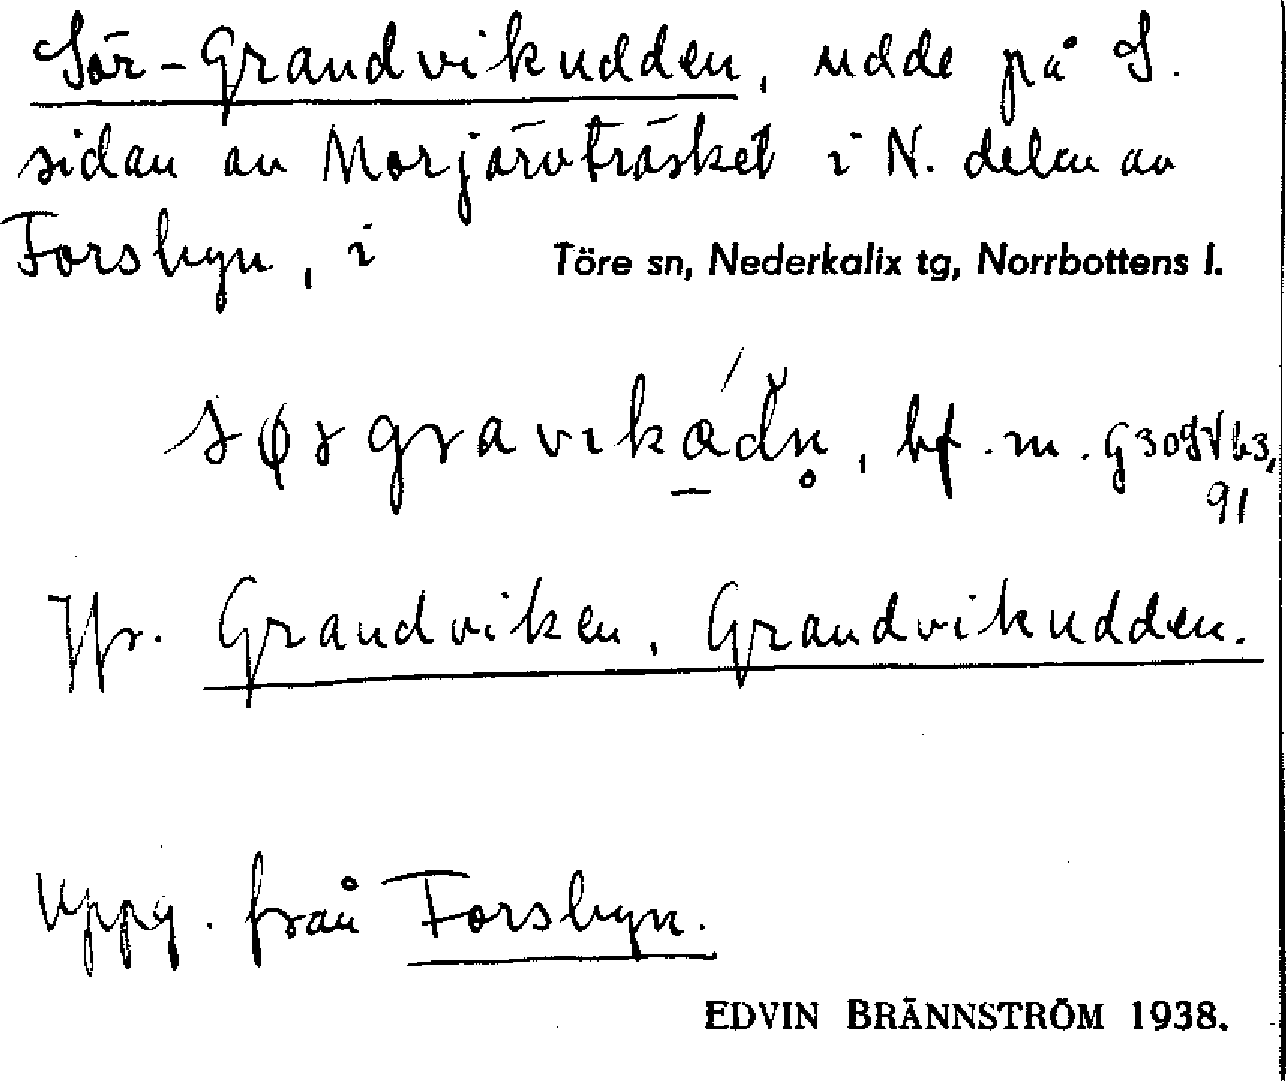 Sör-Grandvikudden, udde på S.
sidan av Morjärvträsket i N. delen av
Forsbyn, i Töre sn, Nederkalix tg, Norrbottens l.
bf. m.
91
Jfr. Grandviken, Grandvikudden.
Uppg. från Forsbyn.
EDVIN BRÄNNSTRÖM 1938.